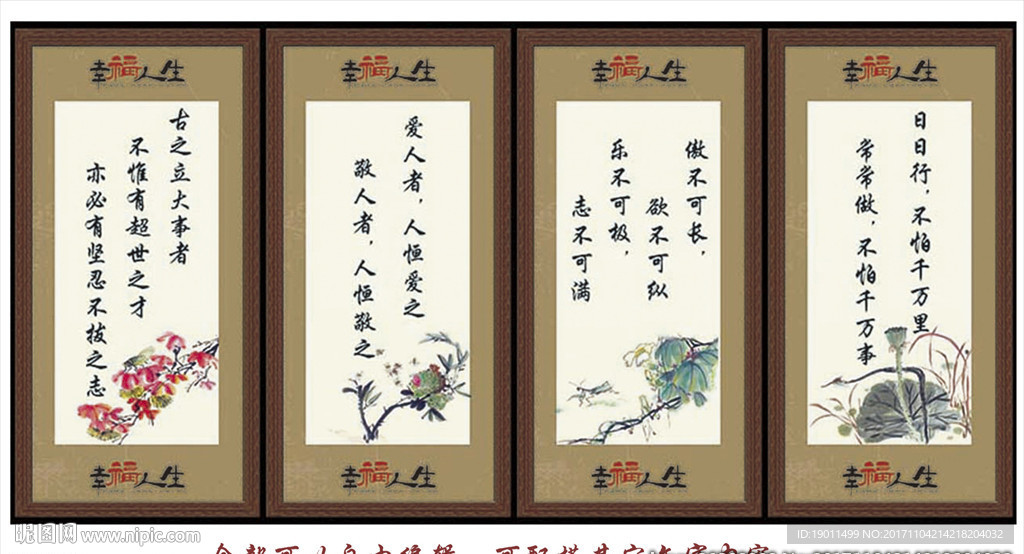 幸福人生
古之立大事者
不惟有超世之才
亦必有坚忍不拔之志
幸福人生
幸福人生
爱人者，人恒爱之
敬人者，人恒敬之
幸福人生
幸福人生
傲不可长，
欲不可纵
乐不可极，
志不可满
幸福人生
幸福人生
日日行，不怕千万里
常常做，不怕千万事
幸福人生
昵图网 www.nipic.com
ID:19011499 NO:20171104214218204032